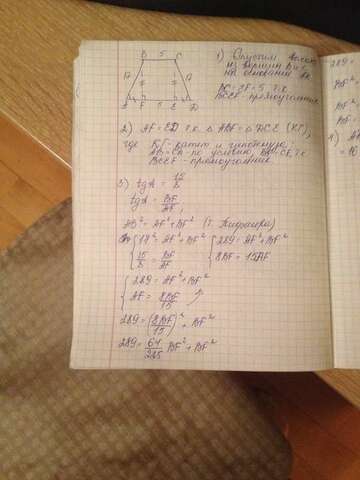 B 5 C
17 17
A F 5 E D
1) Опустим высоты
из вершин B и C
на основание AD
BC = EF = 5 т.к.
BCEF - прямоугольник
2) AF = ED т.к. △ABF = △DCE (КГ),
где КГ - катет и гипотенуза,
AB = CD - по условию, BF = CE, т.к.
BCEF - прямоугольник
3) tgA = 15/8
tgA = BF/AF,
AB² = AF² + BF² (т. Пифагора)
{ 17² = AF² + BF² { 289 = AF² + BF²
15/8 = BF/AF 8BF = 15AF
{ 289 = AF² + BF²
AF = 8BF/15
289 = (8BF/15)² + BF²
289 = 64/225 BF² + BF²
289 =
BF²
BF
4)
= 10